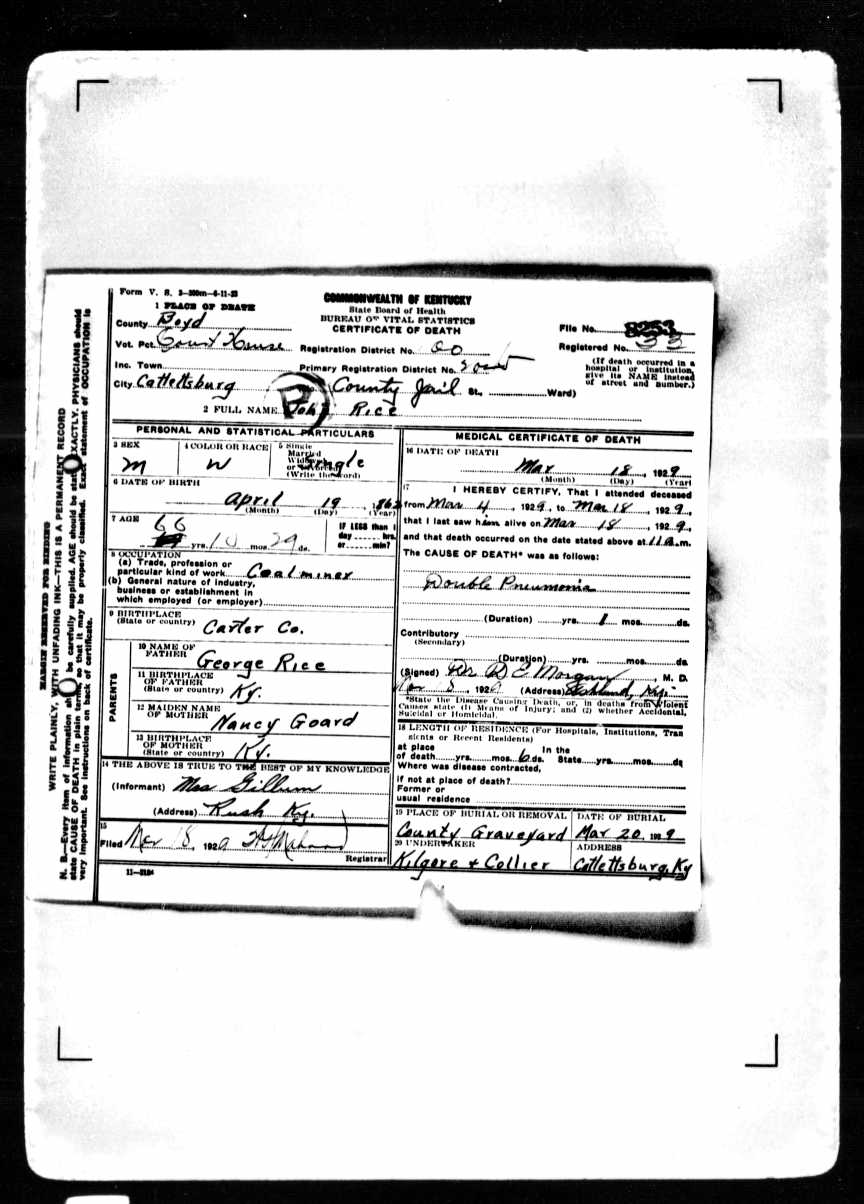 Form V. S. 3—300m—6-11-23
COMMONWEALTH OF KENTUCKY
State Board of Health
BUREAU OF VITAL STATISTICS
CERTIFICATE OF DEATH
1 PLACE OF DEATH
County Boyd
Vot. Pct. Court House
Inc. Town
City Cattettsburg
Registration District No.
Primary Registration District No.
File No. 8253
Registered No. 33
(If death occurred in a hospital or institution, give its NAME instead of street and number.)
County Jail St., Ward)
2 FULL NAME John Rice
PERSONAL AND STATISTICAL PARTICULARS
3 SEX M
4 COLOR OR RACE W
5 Single Married Widowed or Divorced (Write the word) Single
6 DATE OF BIRTH
April 19, 1862
(Month) (Day) (Year)
7 AGE 66 yrs. 10 mos. 29 ds.
IF LESS than 1 day hrs. or min?
8 OCCUPATION
(a) Trade, profession or particular kind of work Coalminer
(b) General nature of industry, business or establishment in which employed (or employer)
9 BIRTHPLACE
(State or country) Carter Co.
PARENTS
10 NAME OF FATHER George Rice
11 BIRTHPLACE OF FATHER (State or country) Ky.
12 MAIDEN NAME OF MOTHER Nancy Goard
13 BIRTHPLACE OF MOTHER (State or country) Ky.
14 THE ABOVE IS TRUE TO THE BEST OF MY KNOWLEDGE
(Informant) Mrs Gillum
(Address) Rush Ky.
15
Filed Mar 18, 1929
Registrar
11—3184
MEDICAL CERTIFICATE OF DEATH
16 DATE OF DEATH
Mar 18, 1929
(Month) (Day) (Year)
17 I HEREBY CERTIFY, That I attended deceased
from Mar 4, 1929, to Mar 18 1929,
that I last saw him alive on Mar 18 1929,
and that death occurred on the date stated above at 11 A.m.
The CAUSE OF DEATH* was as follows:
Double Pneumonia
(Duration) yrs. 1 mos. ds.
Contributory
(Secondary)
(Duration) yrs. mos. ds.
(Signed) Dr. D E Morgan, M. D.
192 (Address) Ashland, Ky.
*State the Disease Causing Death, or, in deaths from Violent
Causes state (1) Means of Injury; and (2) whether Accidental,
Suicidal or Homicidal.
18 LENGTH OF RESIDENCE (For Hospitals, Institutions, Tran
sients or Recent Residents)
at place of death yrs. mos. 6 ds. In the State yrs. mos. ds
Where was disease contracted,
if not at place of death?
Former or
usual residence
19 PLACE OF BURIAL OR REMOVAL
County Graveyard
DATE OF BURIAL
Mar 20, 1929
20 UNDERTAKER
Kilgore + Collier
ADDRESS
Cattettsburg, Ky
MARGIN RESERVED FOR BINDING
WRITE PLAINLY, WITH UNFADING INK—THIS IS A PERMANENT RECORD
N. B.—Every item of information should be carefully supplied. AGE should be stated EXACTLY. PHYSICIANS should
state CAUSE OF DEATH in plain terms, so that it may be properly classified. Exact statement of OCCUPATION is
very important. See instructions on back of certificate.